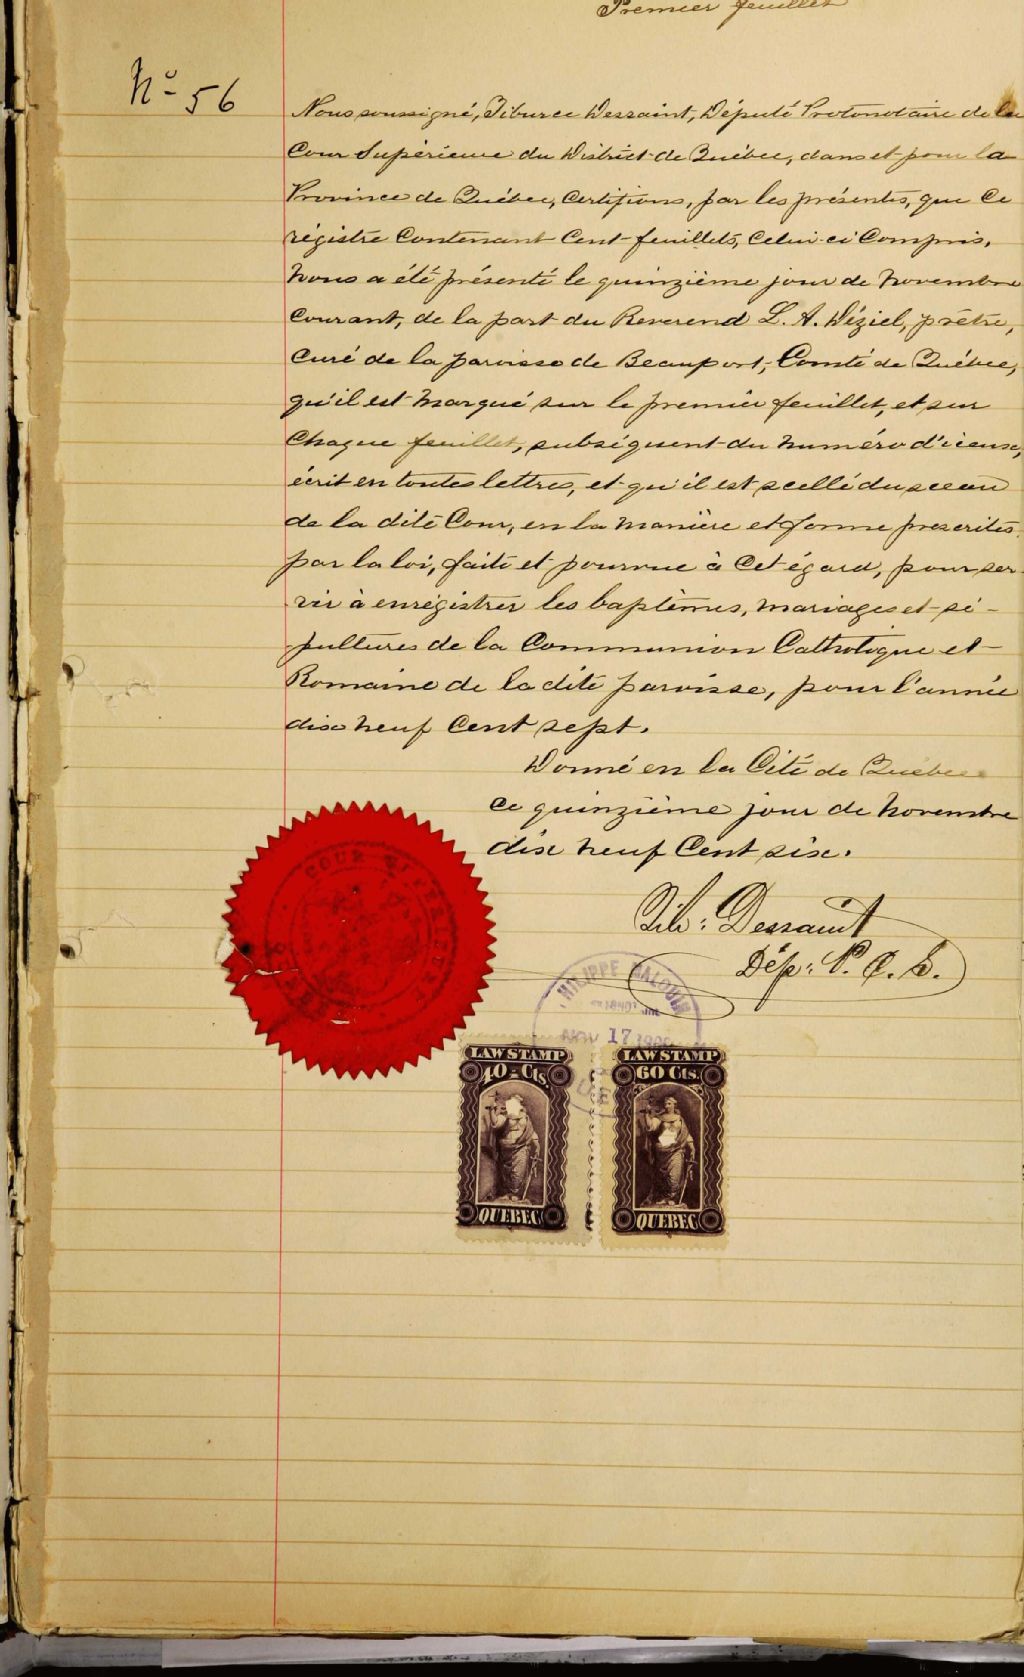 Premier feuillet
No 56
Nous soussigné, Tiburce Dessaint, Député Protonotaire de la
Cour Supérieure du District de Québec, dans et pour la
Province de Québec, Certifions, par les présentes, que ce
régistre Contenant Cent feuillets, Celui-ci Compris,
nous a été présenté le quinzième jour de Novembre
Courant, de la part du Reverend L. A. Déziel, prêtre,
Curé de la paroisse de Beauport, Comté de Québec,
qu'il est marqué sur le premier feuillet, et sur
Chaque feuillet, subséquent du numéro d'icelui,
écrit en toutes lettres, et qu'il est scellé du sceau
de la dite Cour, en la manière et forme prescrites
par la loi, faite et pourvue à Cet égard, pour ser-
vir à enrégistrer les baptêmes, mariages et sé-
pultures de la Communion Catholique et
Romaine de la dite paroisse, pour l'année
dix neuf Cent sept.
Donné en la Cité de Québec
Ce quinzième jour de Novembre
dix neuf Cent six.
Tib: Dessaint
Dép: P. C. S.
COUR SUPERIEURE
QUEBEC
PHILIPPE MALOUIN
NOV 17 1906
LAW STAMP LAW STAMP
40 Cts. 60 Cts.
QUEBEC QUEBEC